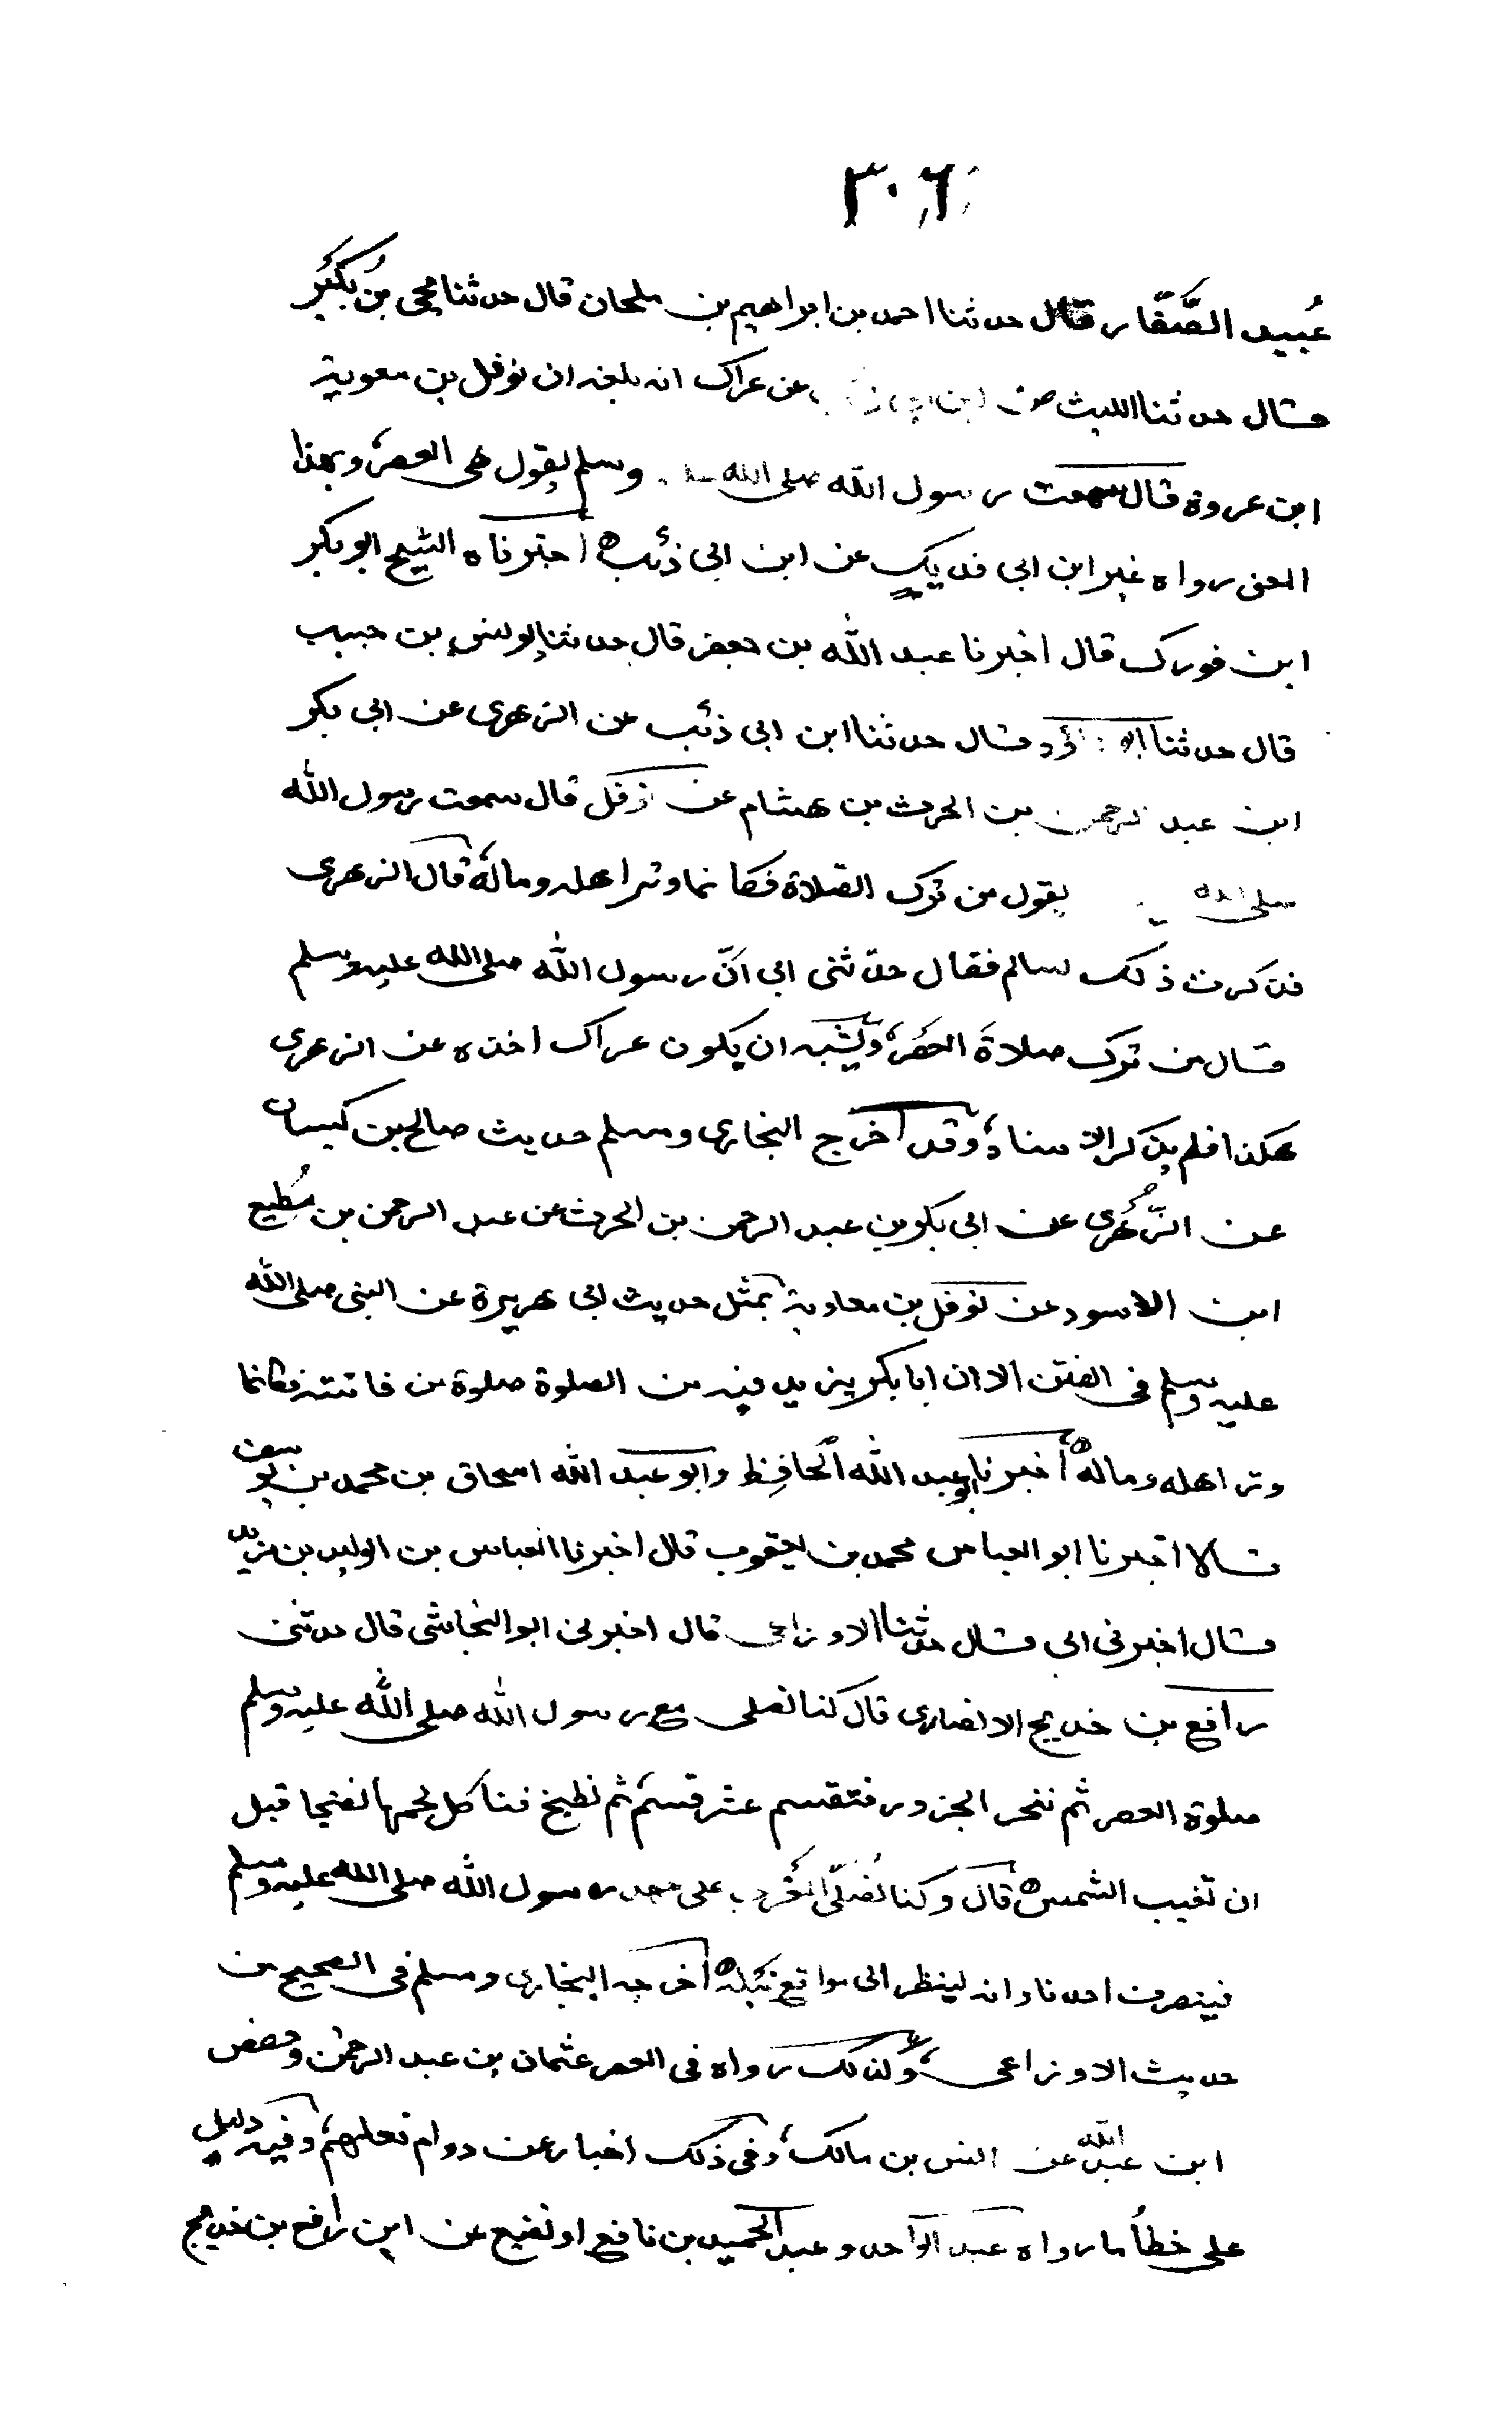 ٣٠٦
عُبيد الصَّفّار قال حدثنا احمد بن ابراهيم بن ملحان قال حدثنا يحيى بن بُكَيْر
قال حدثنا الليث عن عراك انه بلغه ان نوفل بن معوية
ابن عروة قال سمعت رسول الله صلى الله وسلم يقول هى العصر، وبهذا
المعنى رواه غير ابن ابى فديك عن ابن ابى ذئب ه اخبرناه الشيخ ابو بكر
ابن فورك قال اخبرنا عبد الله بن جعفر قال حدثنا يونس بن حبيب
قال حدثنا قال حدثنا ابن ابى ذئب عن الزهرى عن ابى بكر
ابن عبد الرحمن بن الحرث بن هشام عن نوفل قال سمعت رسول الله
صلى الله يقول من ترك الصلاة فكانما وتر اهله وماله، قال الزهرى
فذكرت ذلك لسالم فقال حدّثنى ابى انّ رسول الله صلى الله عليه وسلم
قال من ترك صلاةَ العصر، ويشبه ان يكون عراك اخذه عن الزهرى
هكذا فلم يذكر الاسناد، وقد اخرج البخارى ومسلم حديث صالح بن كيسان
عن الزُّهرى عن ابى بكر بن عبد الرحمن بن الحرث عن عبد الرحمن بن مُطيع
ابن الاسود عن نوفل بن معاوية بمثل حديث ابى هريرة عن النبى صلى الله
عليه وسلم فى الفتن الا ان ابا بكر يزيد فيه من الصلوة صلوة من فاتته فكانما
وتر اهله وماله ه اخبرنا ابو عبد الله الحافظ وابو عبد الله اسحاق بن محمد بن يوسف
قالا اخبرنا ابو العباس محمد بن يعقوب قال اخبرنا العباس بن الوليد بن مزيد
قال اخبرنى ابى قال حدثنا الاوزاعى قال اخبرنى ابو النجاشى قال حدثنى
رافع بن خديج الانصارى قال كنا نصلى مع رسول الله صلى الله عليه وسلم
صلوة العصر ثم ننحر الجزور فتقسم عشر قسم، ثم نطبخ فناكل لحمها نضيجا قبل
ان تغيب الشمس ه قال وكنا نُصلّى المغرب على عهد رسول الله صلى الله عليه وسلم
فينصرف احدنا وانه لينظر الى مواقع نَبله ه اخرجه البخارى ومسلم فى الصحيح من
حديث الاوزاعى، ولذلك رواه فى العصر عثمان بن عبد الرحمن وحفص
ابن عبد الله عن انس بن مالك، وفى ذلك اخبار عن دوام فعلهم، وفيه دليل
على خطأ ما رواه عبد الواحد وعبد الحميد بن نافع او نفيع عن ابن رافع بن خديج